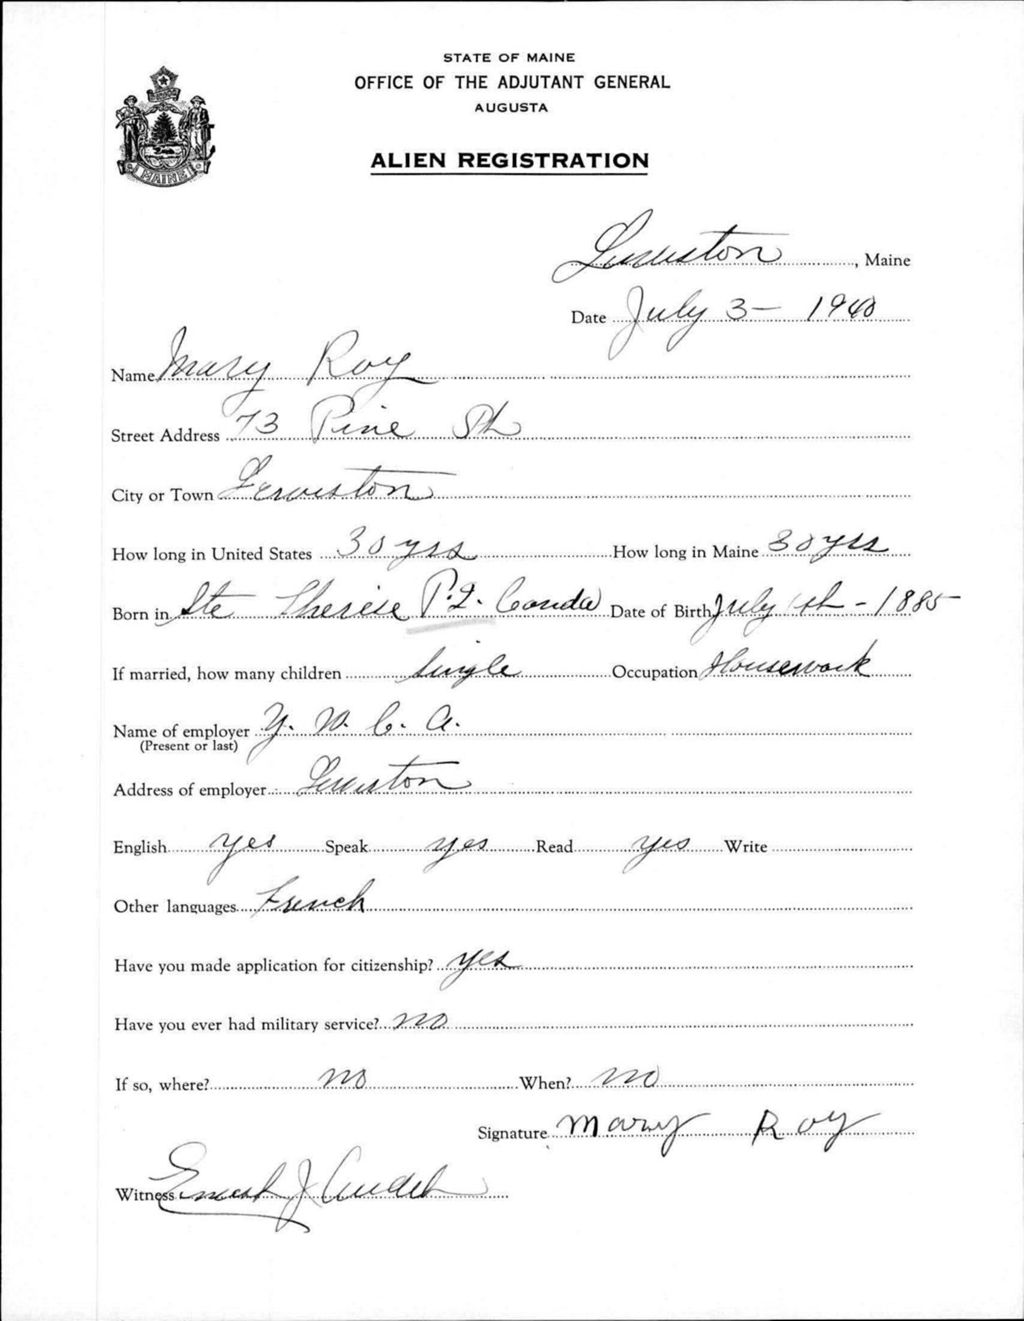 STATE OF MAINE
OFFICE OF THE ADJUTANT GENERAL
AUGUSTA
ALIEN REGISTRATION
MAINE
Lewiston, Maine
Date July 3 - 1940
Name Mary Roy
Street Address 73 Pine St
City or Town Lewiston
How long in United States 30 yrs How long in Maine 30 yrs
Born in Ste Therese P.Q. Canda Date of Birth July 1st - 1885
If married, how many children Single Occupation Housework
Name of employer Y. W. C. A.
(Present or last)
Address of employer Lewiston
English yes Speak yes Read yes Write
Other languages French
Have you made application for citizenship? yes
Have you ever had military service? no
If so, where? no When? no
Signature Mary Roy
Witness Ernest J